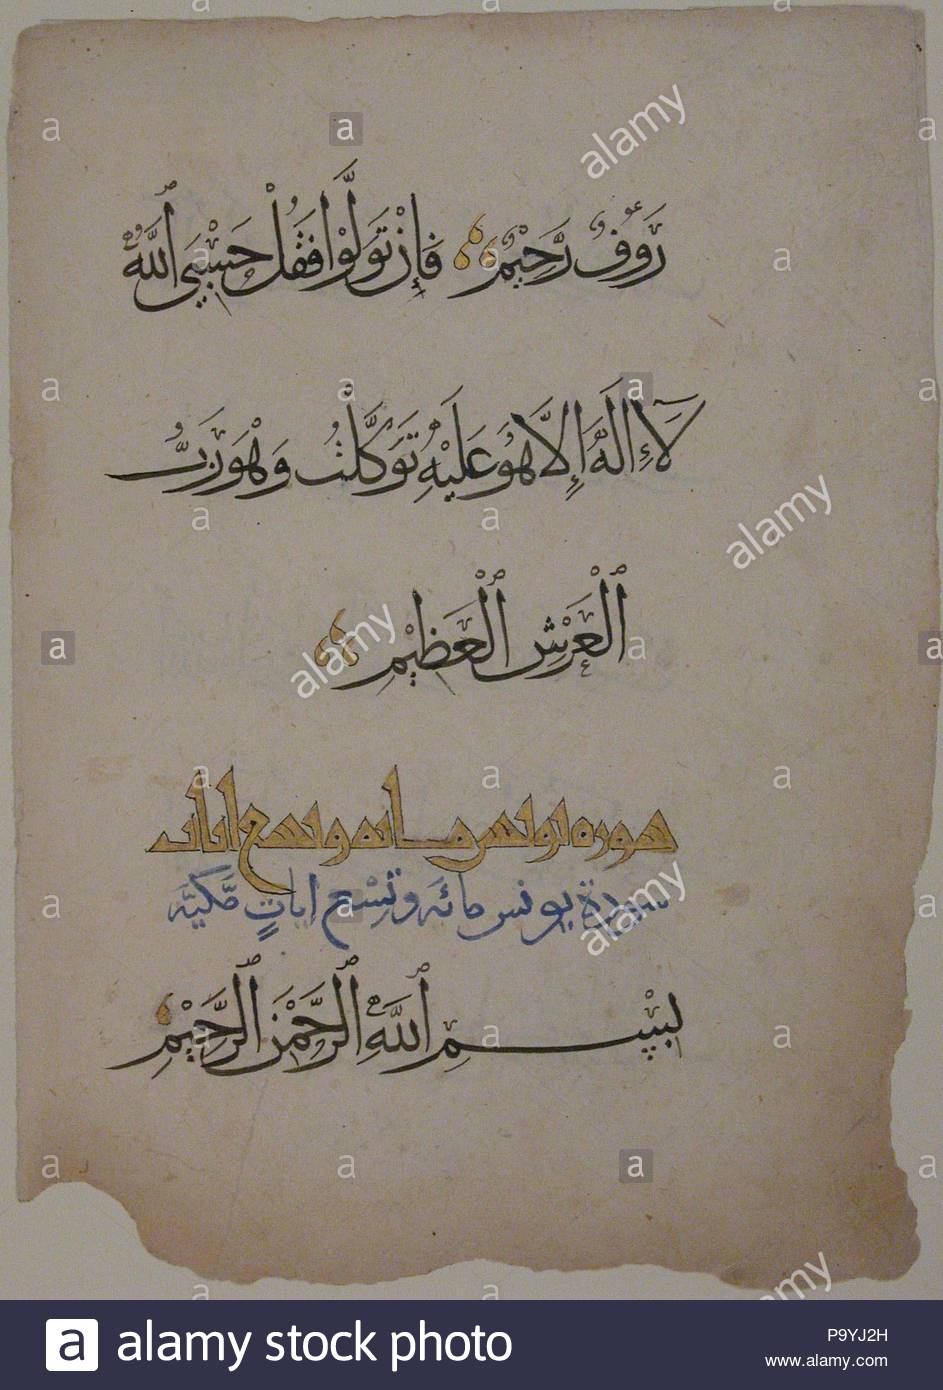 رَءُوفٌ رَّحِيمٌ فَإِنْ تَوَلَّوْا فَقُلْ حَسْبِيَ ٱللَّهُ
لَآ إِلَٰهَ إِلَّا هُوَ عَلَيْهِ تَوَكَّلْتُ وَهُوَ رَبُّ
ٱلْعَرْشِ ٱلْعَظِيمِ
سورة يونس مائة وتسع ايات
سورة يونس مائة وتسع ايات مكية
بِسْمِ ٱللَّهِ ٱلرَّحْمَٰنِ ٱلرَّحِيمِ
alamy
alamy
alamy
alamy
alamy
a alamy stock photo
P9YJ2H
www.alamy.com